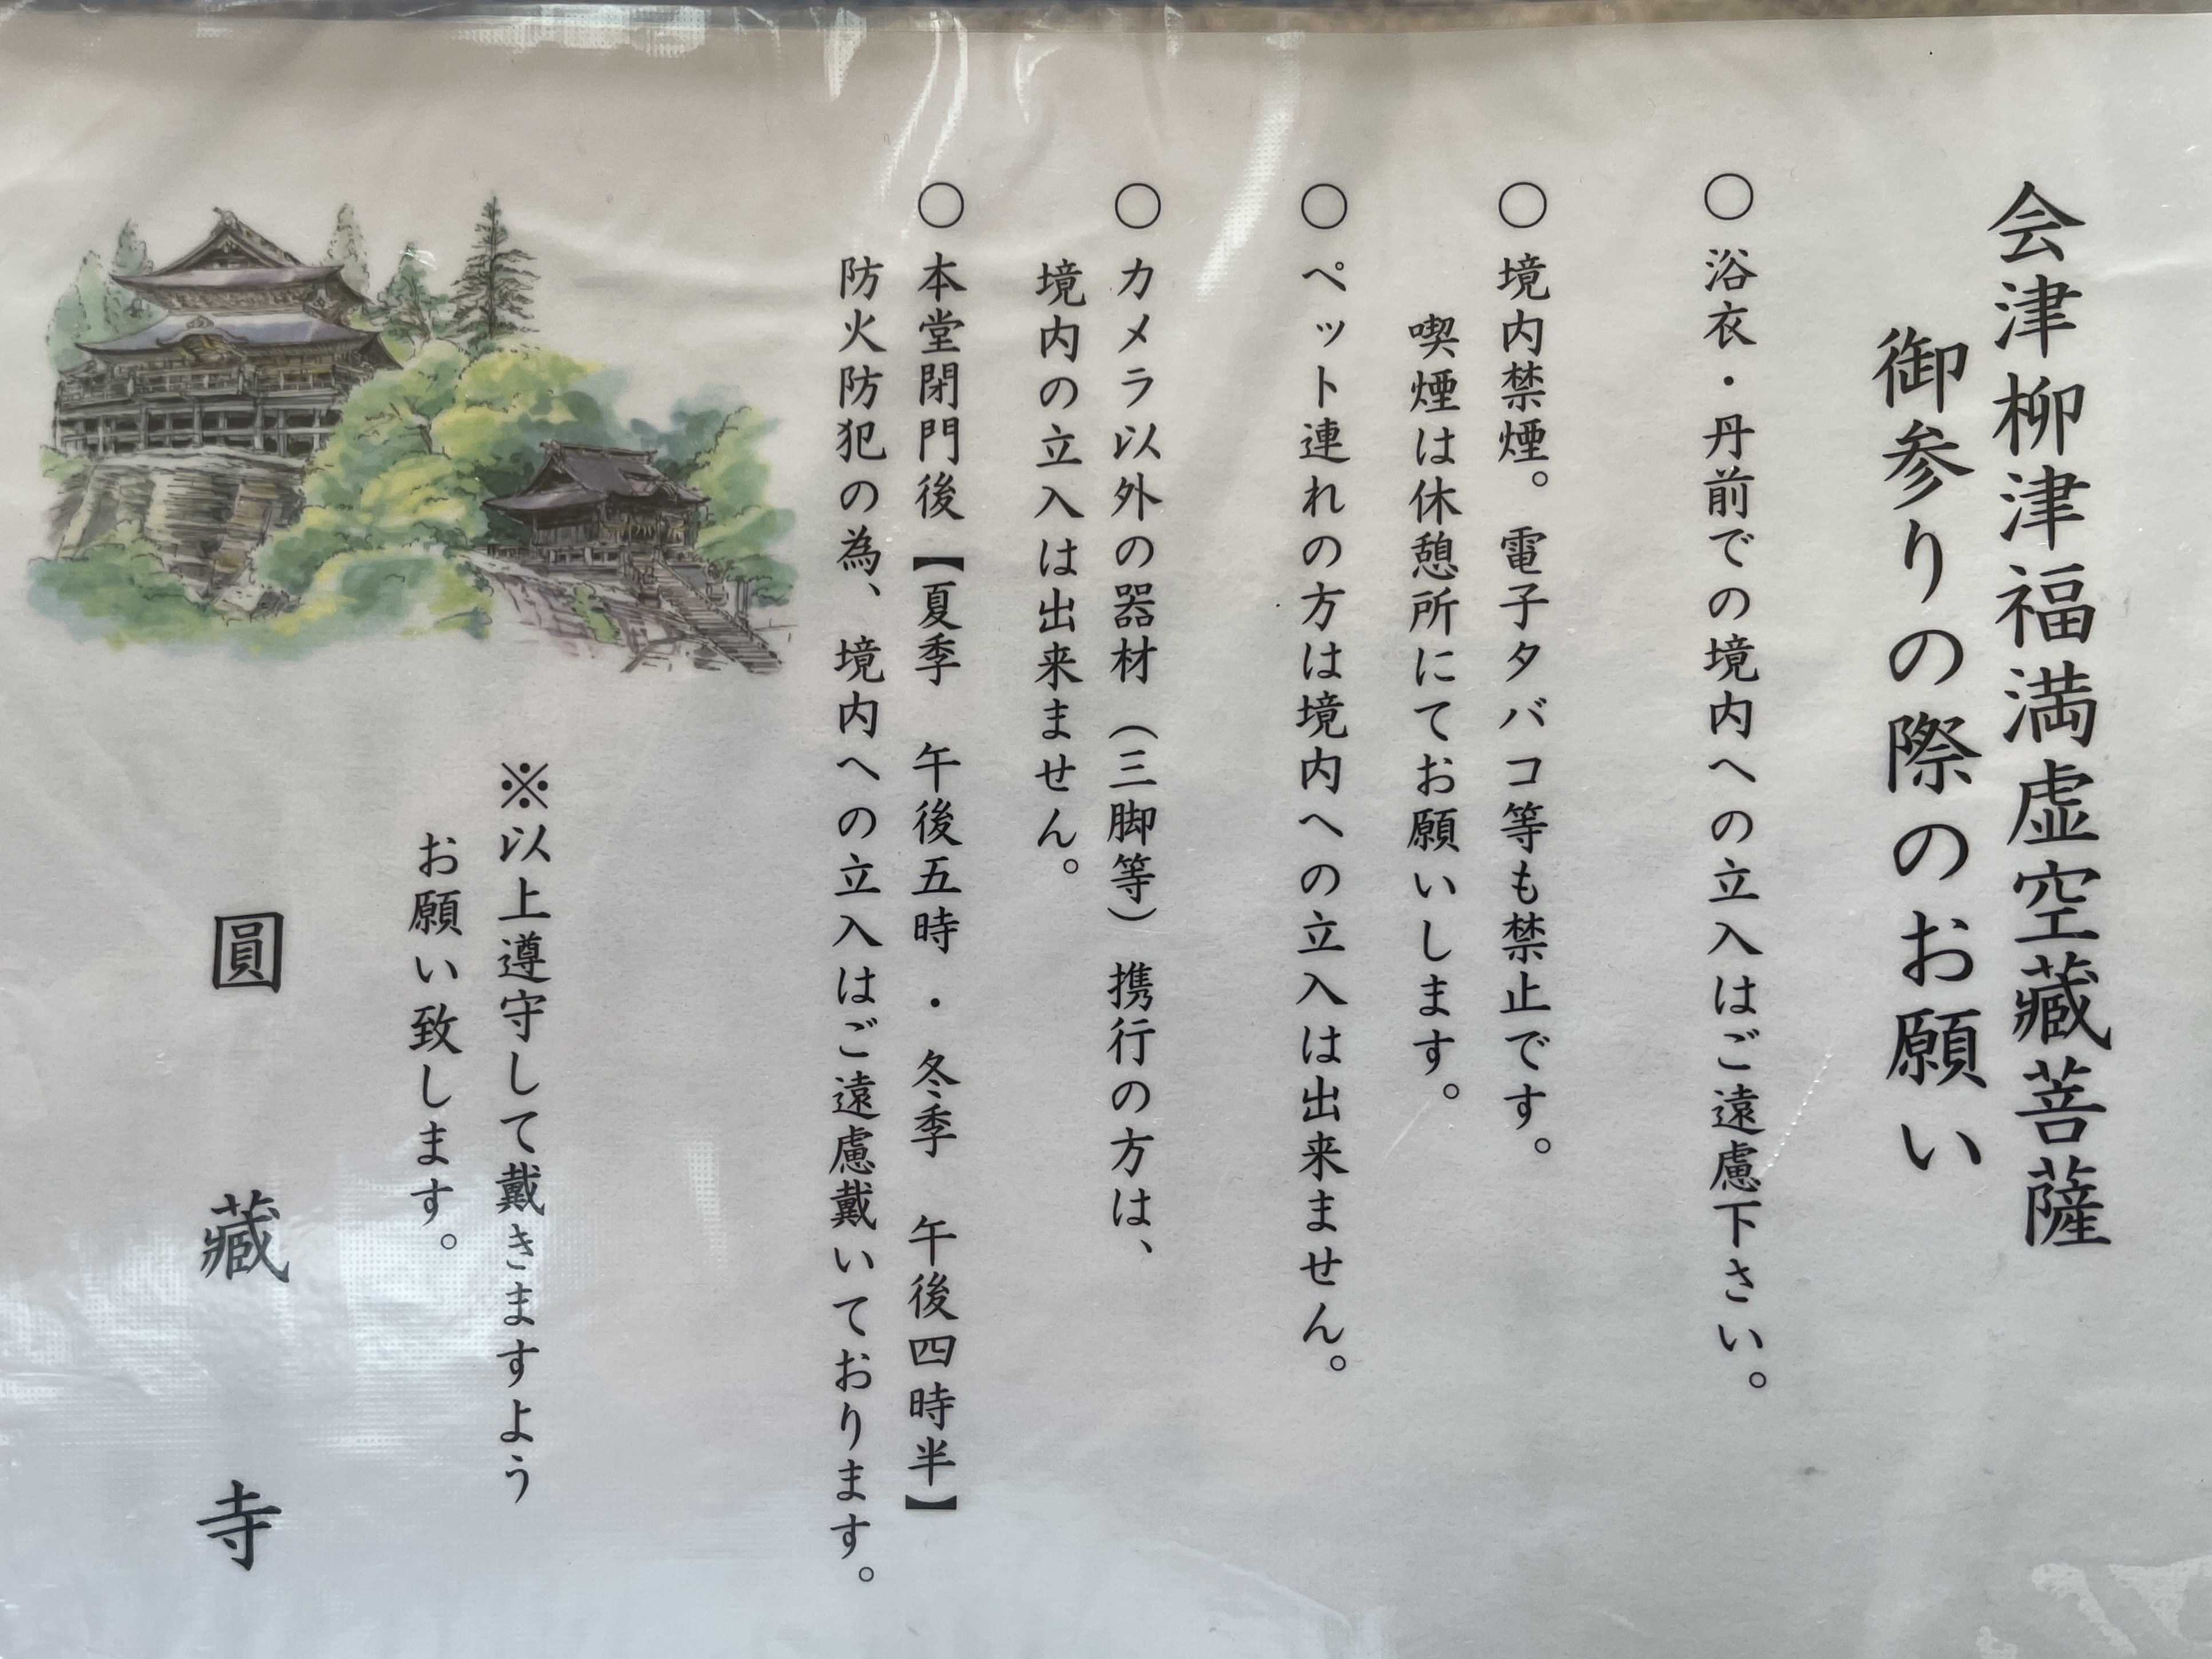 会津柳津福満虚空藏菩薩
御参りの際のお願い
○ 浴衣・丹前での境内への立入はご遠慮下さい。
○ 境内禁煙。電子タバコ等も禁止です。
喫煙は休憩所にてお願いします。
○ ペット連れの方は境内への立入は出来ません。
○ カメラ以外の器材（三脚等）携行の方は、
境内の立入は出来ません。
○ 本堂閉門後【夏季　午後五時・冬季　午後四時半】
防火防犯の為、境内への立入はご遠慮戴いております。
※以上遵守して戴きますよう
お願い致します。
圓藏寺